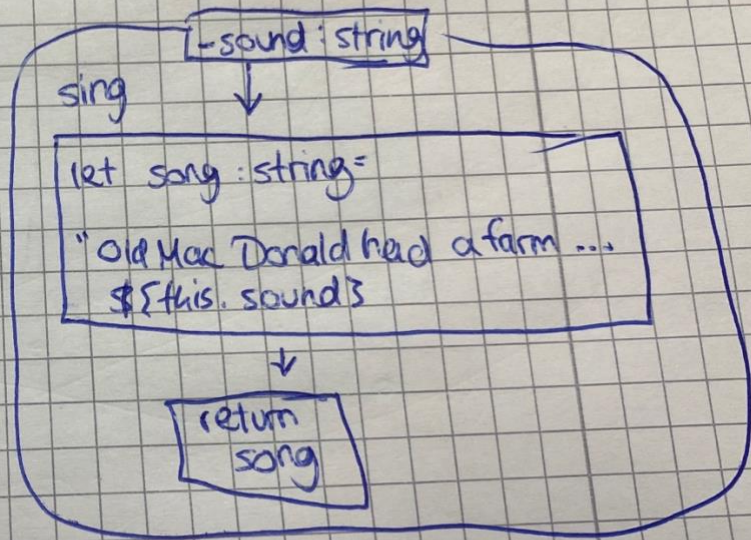 -sound : string
sing
let song : string =
"Old Mac Donald had a farm ...
${this. sound}
return
song